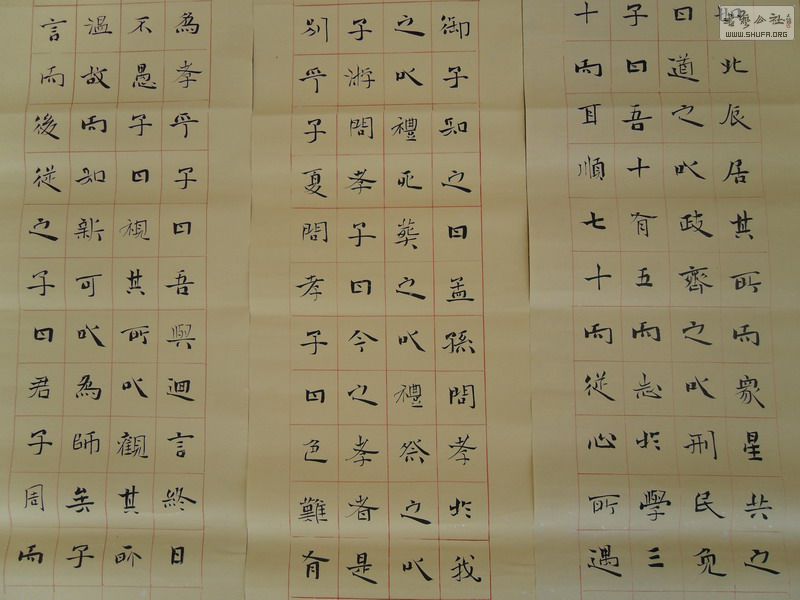 北辰居其所而眾星共之
曰道之以政齊之以刑民免
子曰吾十有五而志於學三
十而耳順七十而從心所遇
御子知之曰孟孫問孝於我
之以禮死葬之以禮祭之以
子游問孝子曰今之孝者是
別乎子夏問孝子曰色難有
為孝乎子曰吾與迴言終日
不愚子曰視其所以觀其所
溫故而知新可以為師矣子
言而後從之子曰君子周而
書藝公社
WWW.SHUFA.ORG